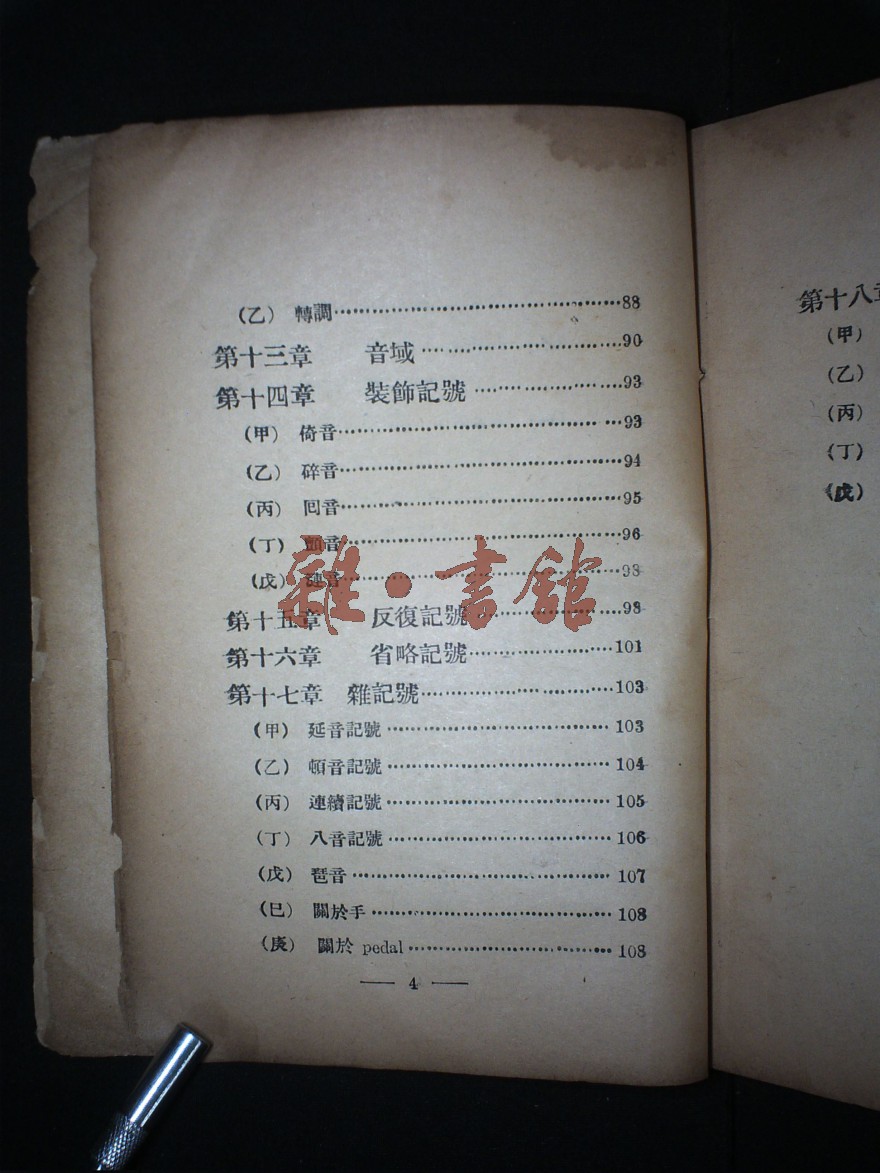 (乙) 轉調……88
第十三章 音域……90
第十四章 裝飾記號……93
(甲) 倚音……93
(乙) 碎音……94
(丙) 回音……95
(丁) 顫音……96
(戊) 漣音……98
第十五章 反復記號……98
第十六章 省略記號……101
第十七章 雜記號……103
(甲) 延音記號……103
(乙) 頓音記號……104
(丙) 連續記號……105
(丁) 八音記號……106
(戊) 琶音……107
(巳) 關於手……108
(庚) 關於 pedal……108
— 4 —
第十八章
(甲)
(乙)
(丙)
(丁)
(戊)
雜·書館